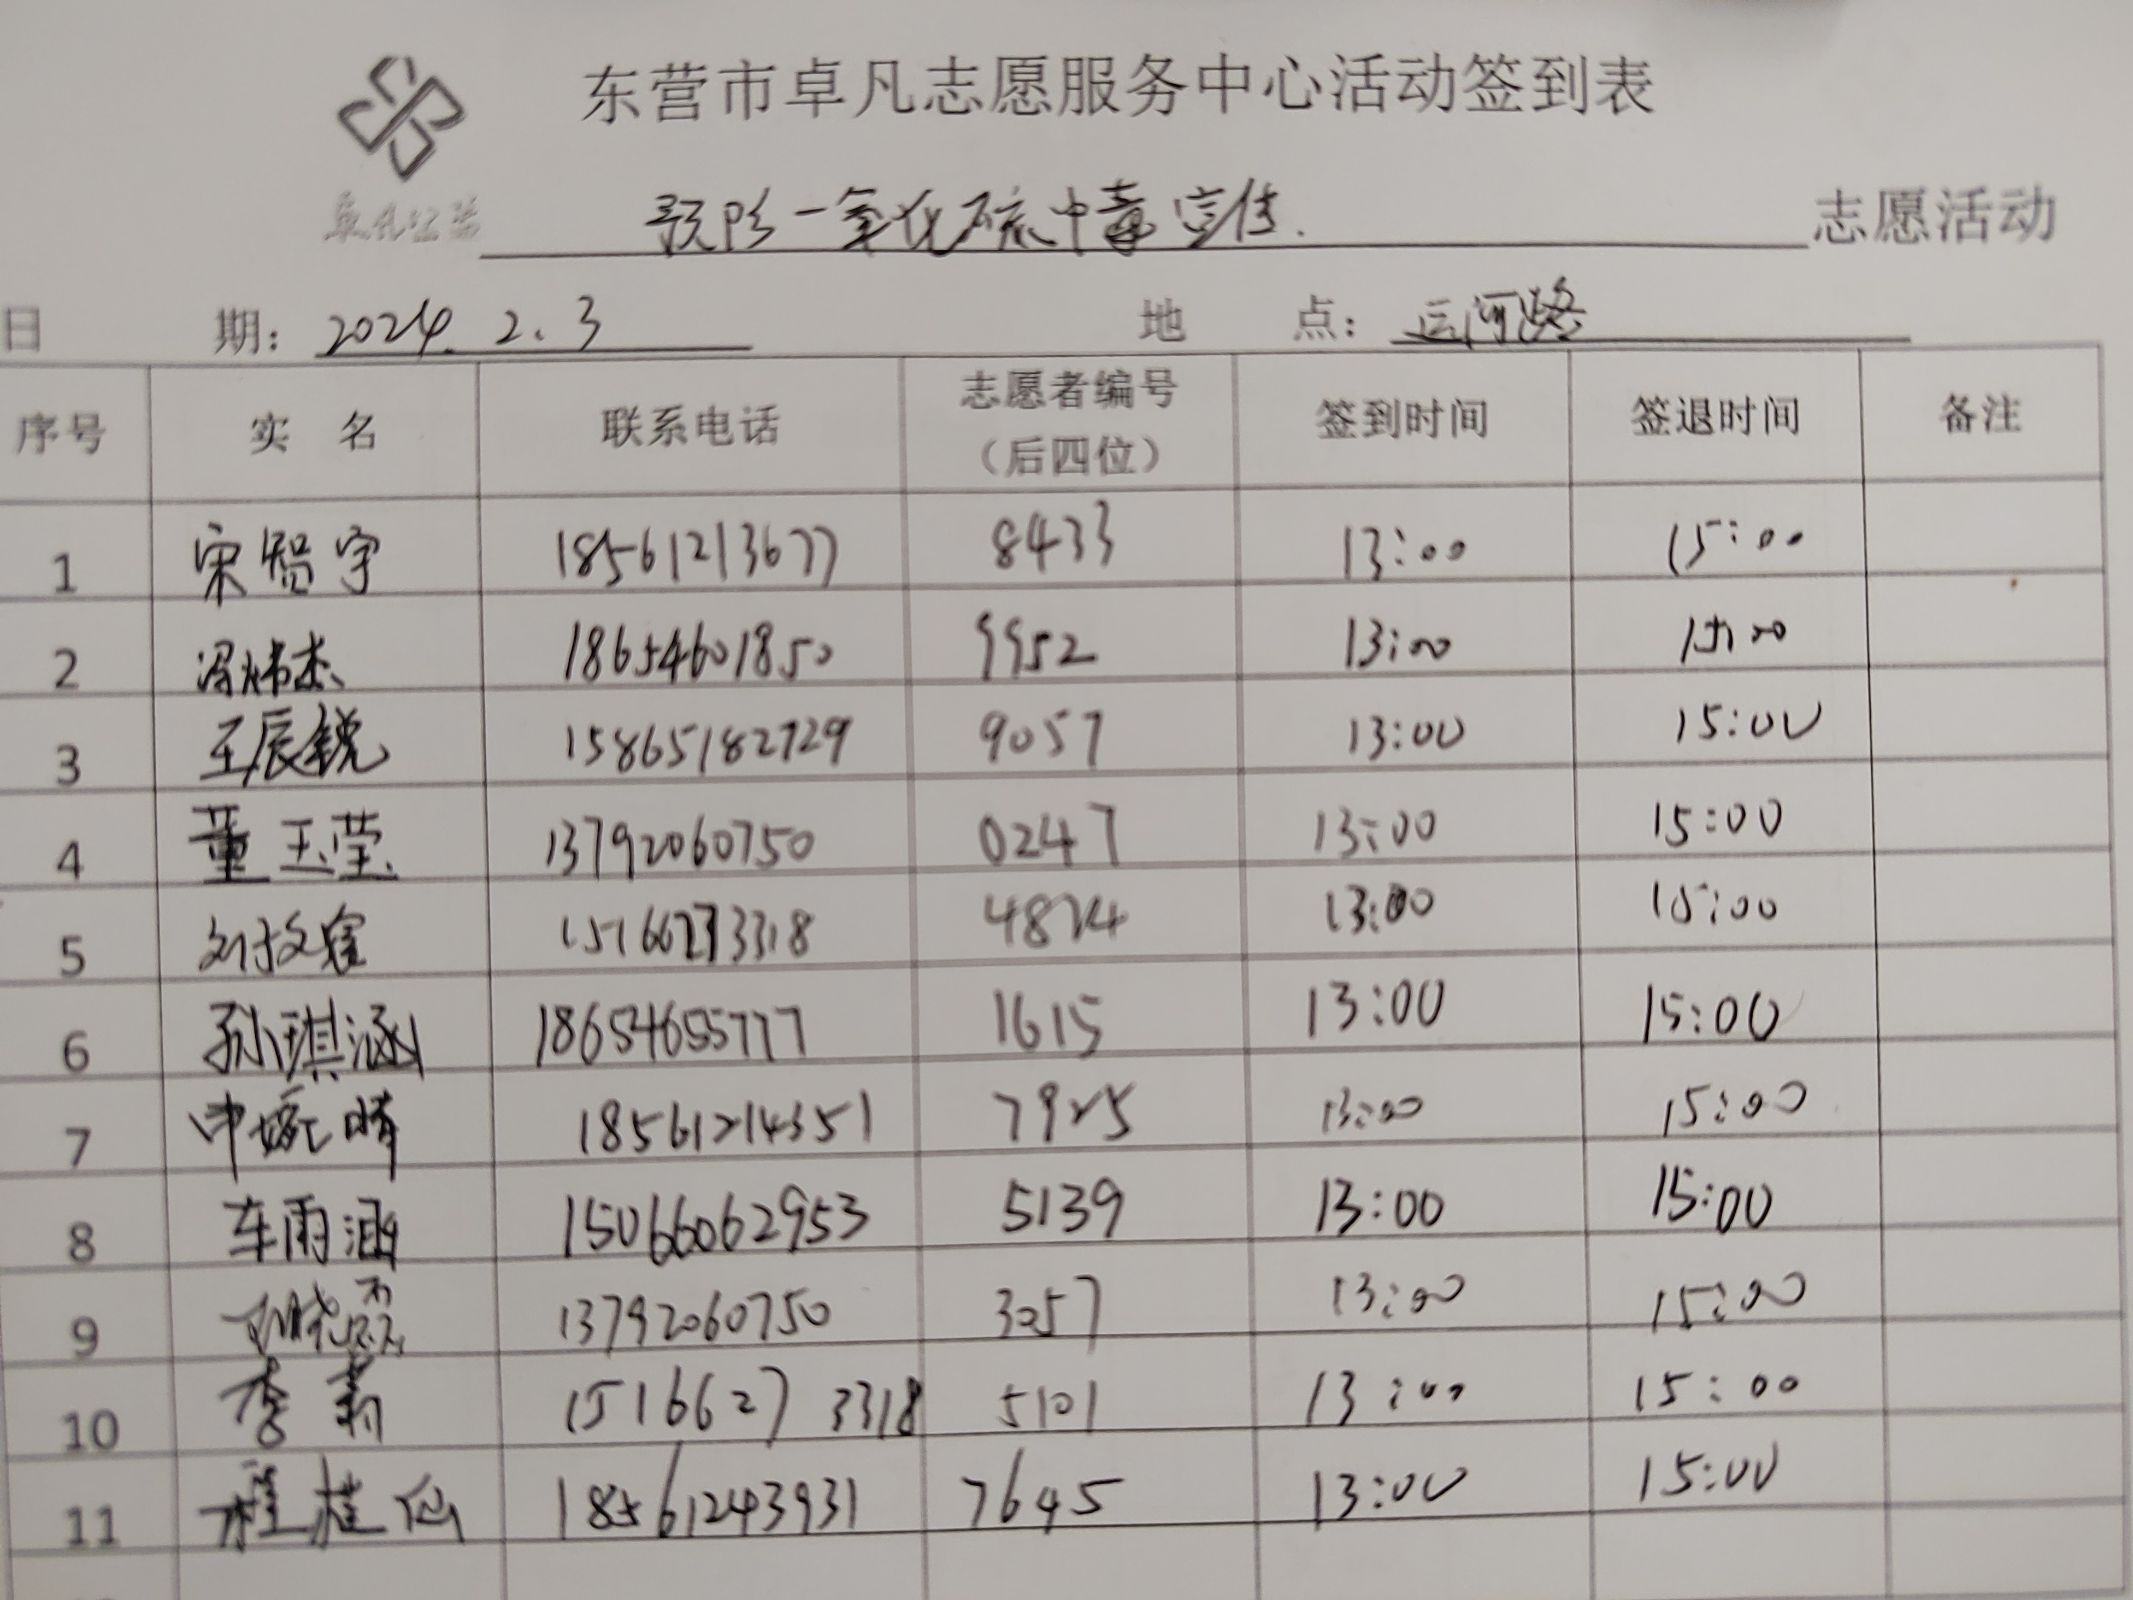 东营市卓凡志愿服务中心活动签到表
卓凡公益
预防一氧化碳中毒宣传. 志愿活动
日 期: 2024. 2. 3 地 点: 运河路
序号 实 名 联系电话 志愿者编号（后四位） 签到时间 签退时间 备注
1 宋智宇 18561213677 8433 13:00 15:00
2 冯炜杰 18654601850 9952 13:00 15:00
3 王辰锐 15865182729 9057 13:00 15:00
4 董玉莹 13792060750 0247 13:00 15:00
5 刘 15166273318 4824 13:00 15:00
6 孙琪涵 18654655777 1615 13:00 15:00
7 申婉晴 18561214351 7925 13:00 15:00
8 车雨涵 15066062953 5139 13:00 15:00
9 13792060750 3057 13:00 15:00
10 李莉 15166273318 5101 13:00 15:00
11 程桂仙 18561243931 7645 13:00 15:00